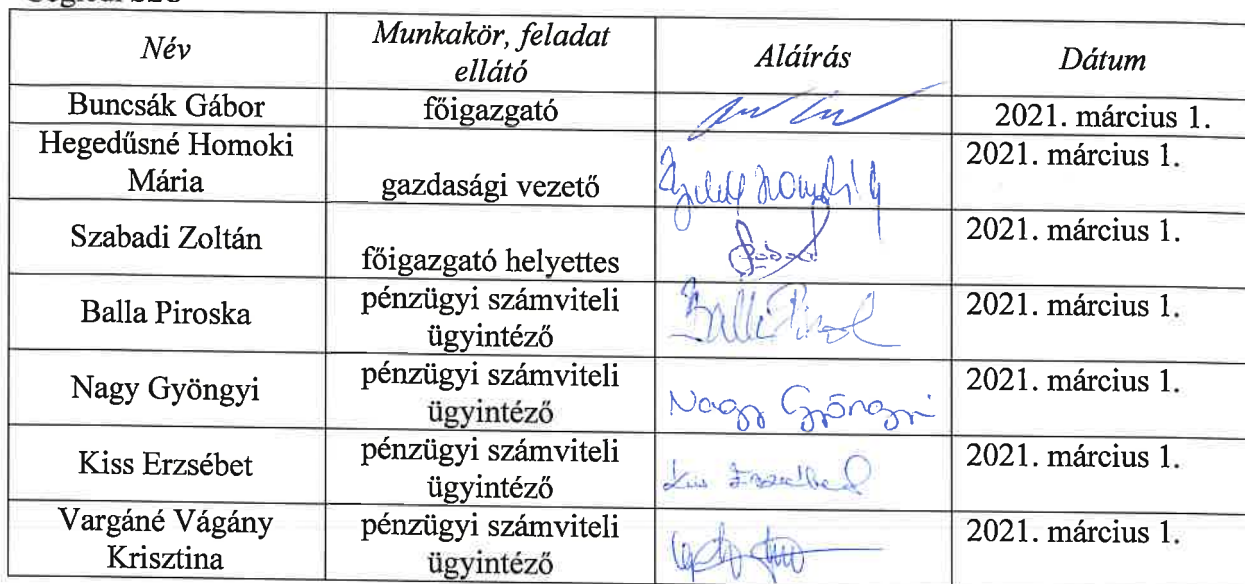 Név Munkakör, feladat ellátó Aláírás Dátum
Buncsák Gábor főigazgató 2021. március 1.
Hegedűsné Homoki Mária gazdasági vezető 2021. március 1.
Szabadi Zoltán főigazgató helyettes 2021. március 1.
Balla Piroska pénzügyi számviteli ügyintéző Balla Pirosk 2021. március 1.
Nagy Gyöngyi pénzügyi számviteli ügyintéző Nagy Gyöngyi 2021. március 1.
Kiss Erzsébet pénzügyi számviteli ügyintéző Kiss Erzsébet 2021. március 1.
Vargáné Vágány Krisztina pénzügyi számviteli ügyintéző 2021. március 1.